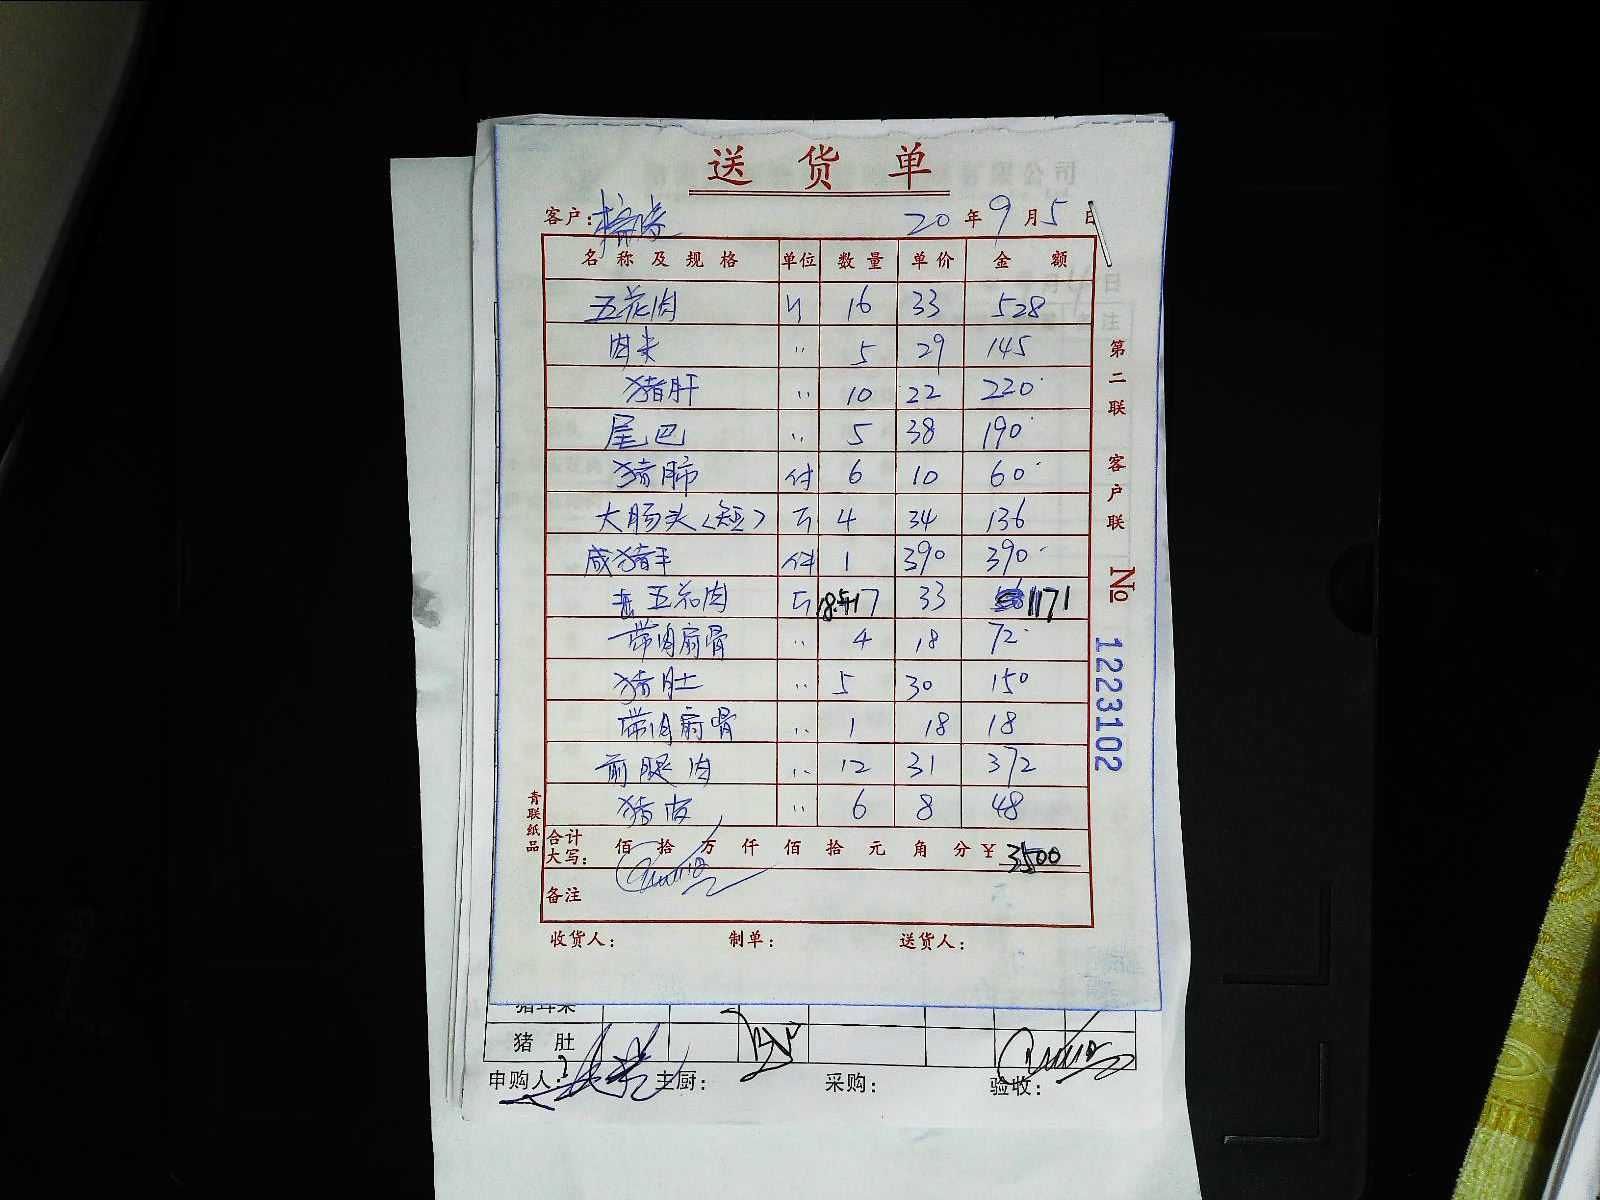 送货单
客户: 20年9月5日
名称及规格 单位 数量 单价 金额
五花肉 斤 16 33 528
肉米 〃 5 29 145
猪肝 〃 10 22 220
尾巴 〃 5 38 190
猪肺 付 6 10 60
大肠头(短) 斤 4 34 136
咸猪手 件 1 390 390
去五花肉 斤 18.5+17 33 1171
带肉扇骨 〃 4 18 72
猪肚 〃 5 30 150
带肉扇骨 〃 1 18 18
前腿肉 〃 12 31 372
猪皮 〃 6 8 48
合计大写: 佰 拾 万 仟 佰 拾 元 角 分 ¥3500
备注
收货人: 制单: 送货人:
第二联 客户联
No 1223102
青联纸品
猪肚
申购人: 主厨: 采购: 验收: